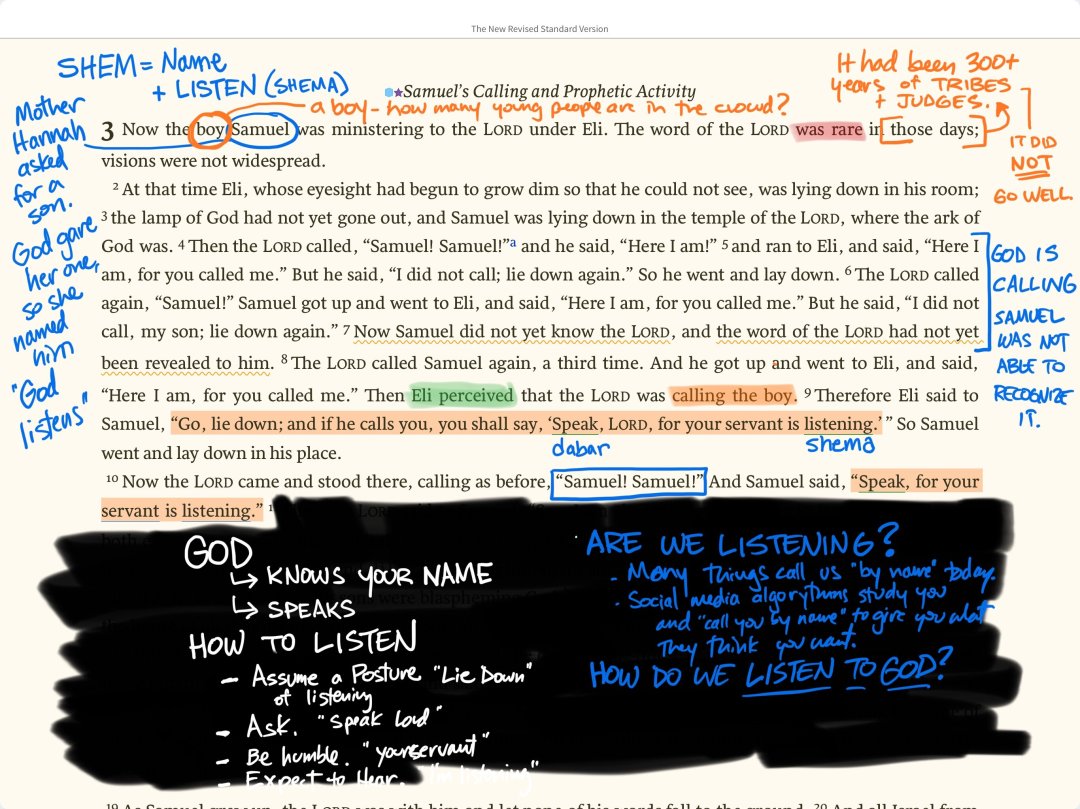 The New Revised Standard Version
SHEM = Name
+ LISTEN (SHEMA)
Mother
Hannah
asked
for a
son.
God gave
her one,
so she
named
him
"God
listens"
It had been 300+
years of TRIBES
+ JUDGES.
IT DID
NOT
GO WELL
Samuel's Calling and Prophetic Activity
a boy - how many young people are in the crowd?
3 Now the boy Samuel was ministering to the LORD under Eli. The word of the LORD was rare in those days;
visions were not widespread.
2 At that time Eli, whose eyesight had begun to grow dim so that he could not see, was lying down in his room;
3 the lamp of God had not yet gone out, and Samuel was lying down in the temple of the LORD, where the ark of
God was. 4 Then the LORD called, “Samuel! Samuel!”a and he said, “Here I am!” 5 and ran to Eli, and said, “Here I
am, for you called me.” But he said, “I did not call; lie down again.” So he went and lay down. 6 The LORD called
again, “Samuel!” Samuel got up and went to Eli, and said, “Here I am, for you called me.” But he said, “I did not
call, my son; lie down again.” 7 Now Samuel did not yet know the LORD, and the word of the LORD had not yet
been revealed to him. 8 The LORD called Samuel again, a third time. And he got up and went to Eli, and said,
“Here I am, for you called me.” Then Eli perceived that the LORD was calling the boy. 9 Therefore Eli said to
Samuel, “Go, lie down; and if he calls you, you shall say, ‘Speak, LORD, for your servant is listening.’” So Samuel
went and lay down in his place.
dabar
shema
GOD IS
CALLING
SAMUEL
WAS NOT
ABLE TO
RECOGNIZE
IT.
10 Now the LORD came and stood there, calling as before, “Samuel! Samuel!” And Samuel said, “Speak, for your
servant is listening.”
GOD
↳ KNOWS YOUR NAME
↳ SPEAKS
HOW TO LISTEN
- Assume a Posture "Lie Down"
of listening
- Ask. "Speak Lord"
- Be humble. "your servant"
- Expect to Hear. "I'm listening"
ARE WE LISTENING?
- Many things call us "by name" today.
- Social media algorythms study you
and "call you by name" to give you what
They think you want.
HOW DO WE LISTEN TO GOD?